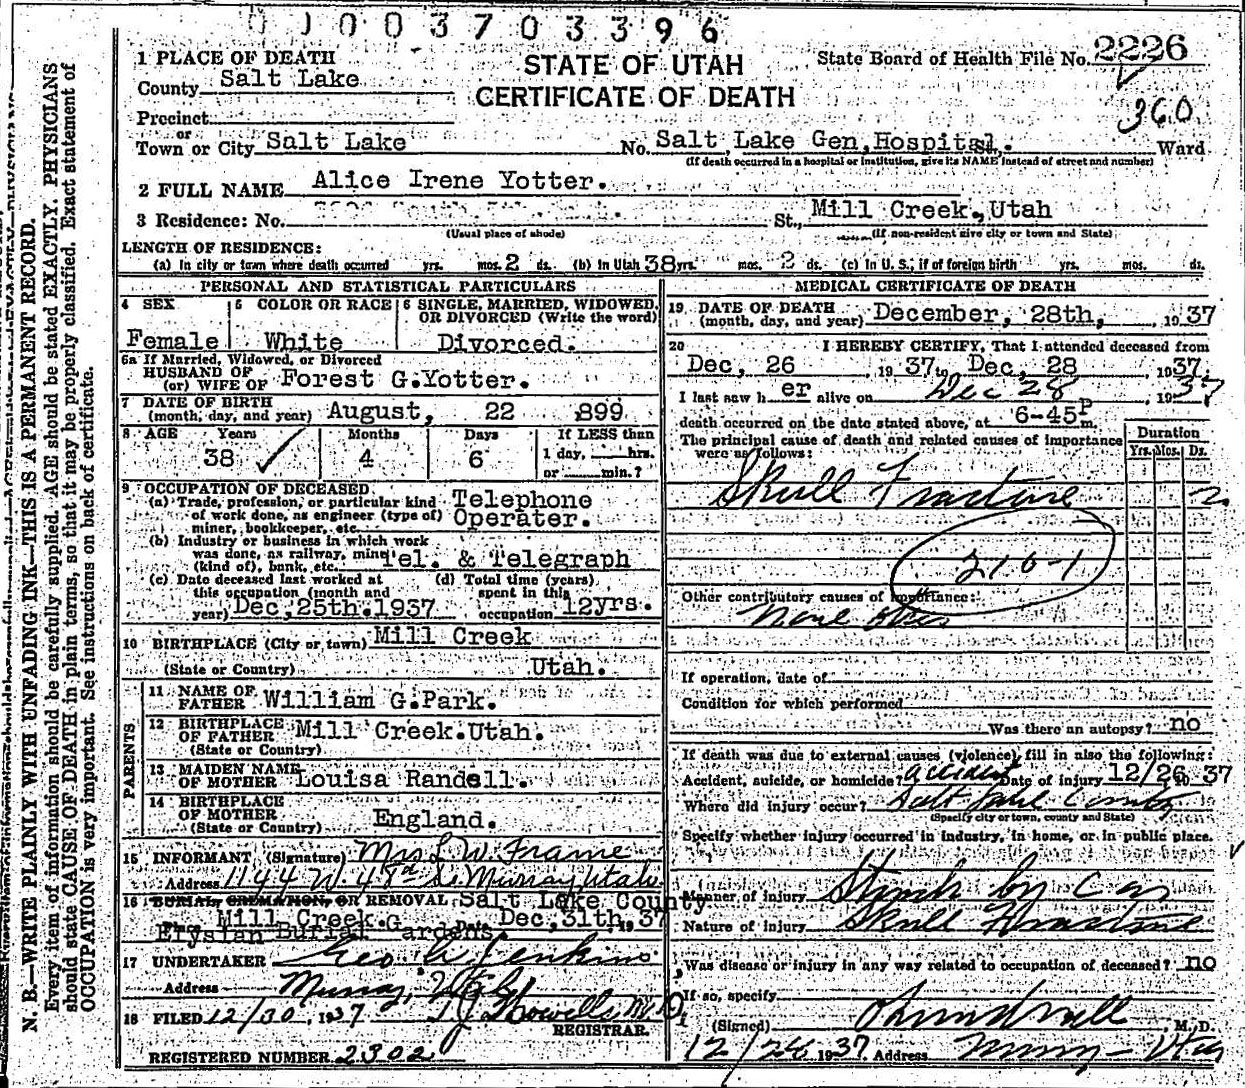 0 1 0 0 3 7 0 3 3 9 6
1 PLACE OF DEATH
STATE OF UTAH
State Board of Health File No. 2226
County Salt Lake
CERTIFICATE OF DEATH
360
Precinct
or
Town or City Salt Lake No. Salt Lake Gen, Hospital. St. Ward
(If death occurred in a hospital or institution, give its NAME instead of street and number)
2 FULL NAME Alice Irene Yotter.
3 Residence: No. St., Mill Creek, Utah
(Usual place of abode) (If non-resident give city or town and State)
LENGTH OF RESIDENCE:
(a) In city or town where death occurred yrs. mos. 2 ds. (b) In Utah 38 yrs. mos. 2 ds. (c) In U. S., if of foreign birth yrs. mos. ds.
PERSONAL AND STATISTICAL PARTICULARS
4 SEX 5 COLOR OR RACE 6 SINGLE, MARRIED, WIDOWED, OR DIVORCED (Write the word)
Female White Divorced.
6a If Married, Widowed, or Divorced
HUSBAND OF
(or) WIFE OF Forest G. Yotter.
7 DATE OF BIRTH
(month, day, and year) August, 22 899
8 AGE Years Months Days If LESS than
38 4 6 1 day, hrs.
or min.?
9 OCCUPATION OF DECEASED
(a) Trade, profession, or particular kind Telephone
of work done, as engineer (type of) Operater.
miner, bookkeeper, etc.
(b) Industry or business in which work
was done, as railway, mine
(kind of), bank, etc. Tel. & Telegraph
(c) Date deceased last worked at (d) Total time (years)
this occupation (month and spent in this
year) Dec, 25th. 1937 occupation 12yrs.
10 BIRTHPLACE (City or town) Mill Creek
(State or Country) Utah.
PARENTS
11 NAME OF
FATHER William G. Park.
12 BIRTHPLACE
OF FATHER Mill Creek. Utah.
(State or Country)
13 MAIDEN NAME
OF MOTHER Louisa Randell.
14 BIRTHPLACE
OF MOTHER
(State or Country) England.
15 INFORMANT (Signature) Mrs L W. Frame
Address 1144 W. 48th So Murray, Utah
16 BURIAL, CREMATION, OR REMOVAL Salt Lake County
Mill Creek. Dec, 31th, 37
Elysian Burial Gardens.
17 UNDERTAKER Geo A Jenkins
Address Murray, Utah
18 FILED 12/30, 1937
REGISTRAR.
REGISTERED NUMBER 2302
MEDICAL CERTIFICATE OF DEATH
19 DATE OF DEATH
(month, day, and year) December, 28th, 1937
20 I HEREBY CERTIFY, That I attended deceased from
Dec, 26, 1937 to Dec, 28 1937.
I last saw h er alive on Dec 28, 1937
death occurred on the date stated above, at 6-45P m.
The principal cause of death and related causes of importance
were as follows:
Duration
Yrs. Mos. Ds.
Skull Fracture 2
210-1
Other contributory causes of importance:
None
If operation, date of
Condition for which performed
Was there an autopsy? no
If death was due to external causes (violence) fill in also the following:
Accident, suicide, or homicide? Accident Date of injury 12/26 37
Where did injury occur? Salt Lake County
(Specify city or town, county and State)
Specify whether injury occurred in industry, in home, or in public place.
Manner of injury Struck by Car
Nature of injury Skull Fracture
Was disease or injury in any way related to occupation of deceased? no
If so, specify
(Signed) M. D.
1937 Address Murray - Utah
N. B.—WRITE PLAINLY WITH UNFADING INK—THIS IS A PERMANENT RECORD.
Every item of information should be carefully supplied. AGE should be stated EXACTLY. PHYSICIANS
should state CAUSE OF DEATH in plain terms, so that it may be properly classified. Exact statement of
OCCUPATION is very important. See instructions on back of certificate.